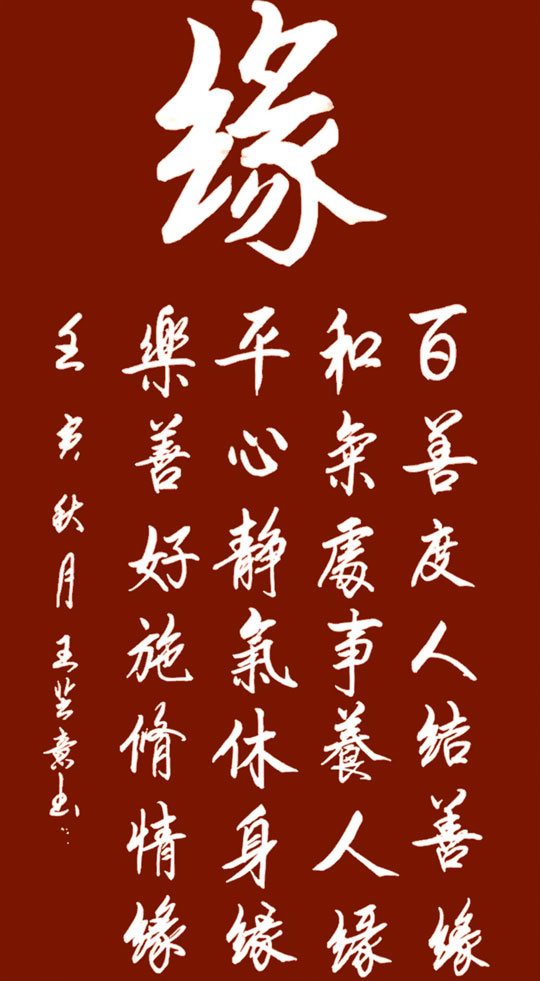 缘
百善度人结善缘
和氣處事養人缘
平心静氣休身缘
樂善好施脩情缘
壬寅秋月王芸意书